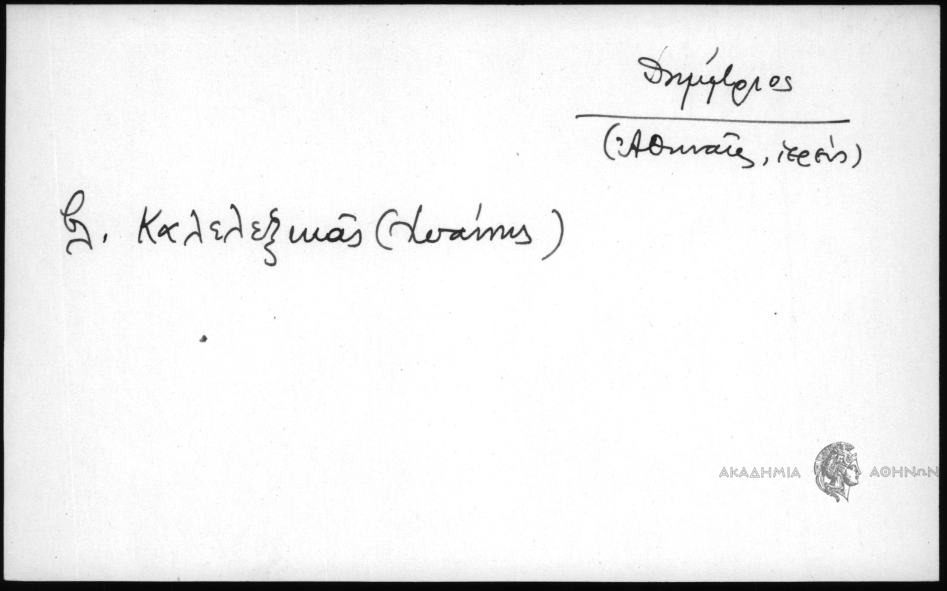 Δημήτριος
(Ἀθηναῖος, ἱερεύς)
βλ. Καλελεξικᾶς (Ἰωάννης)
ΑΚΑΔΗΜΙΑ ΑΘΗΝΩΝ